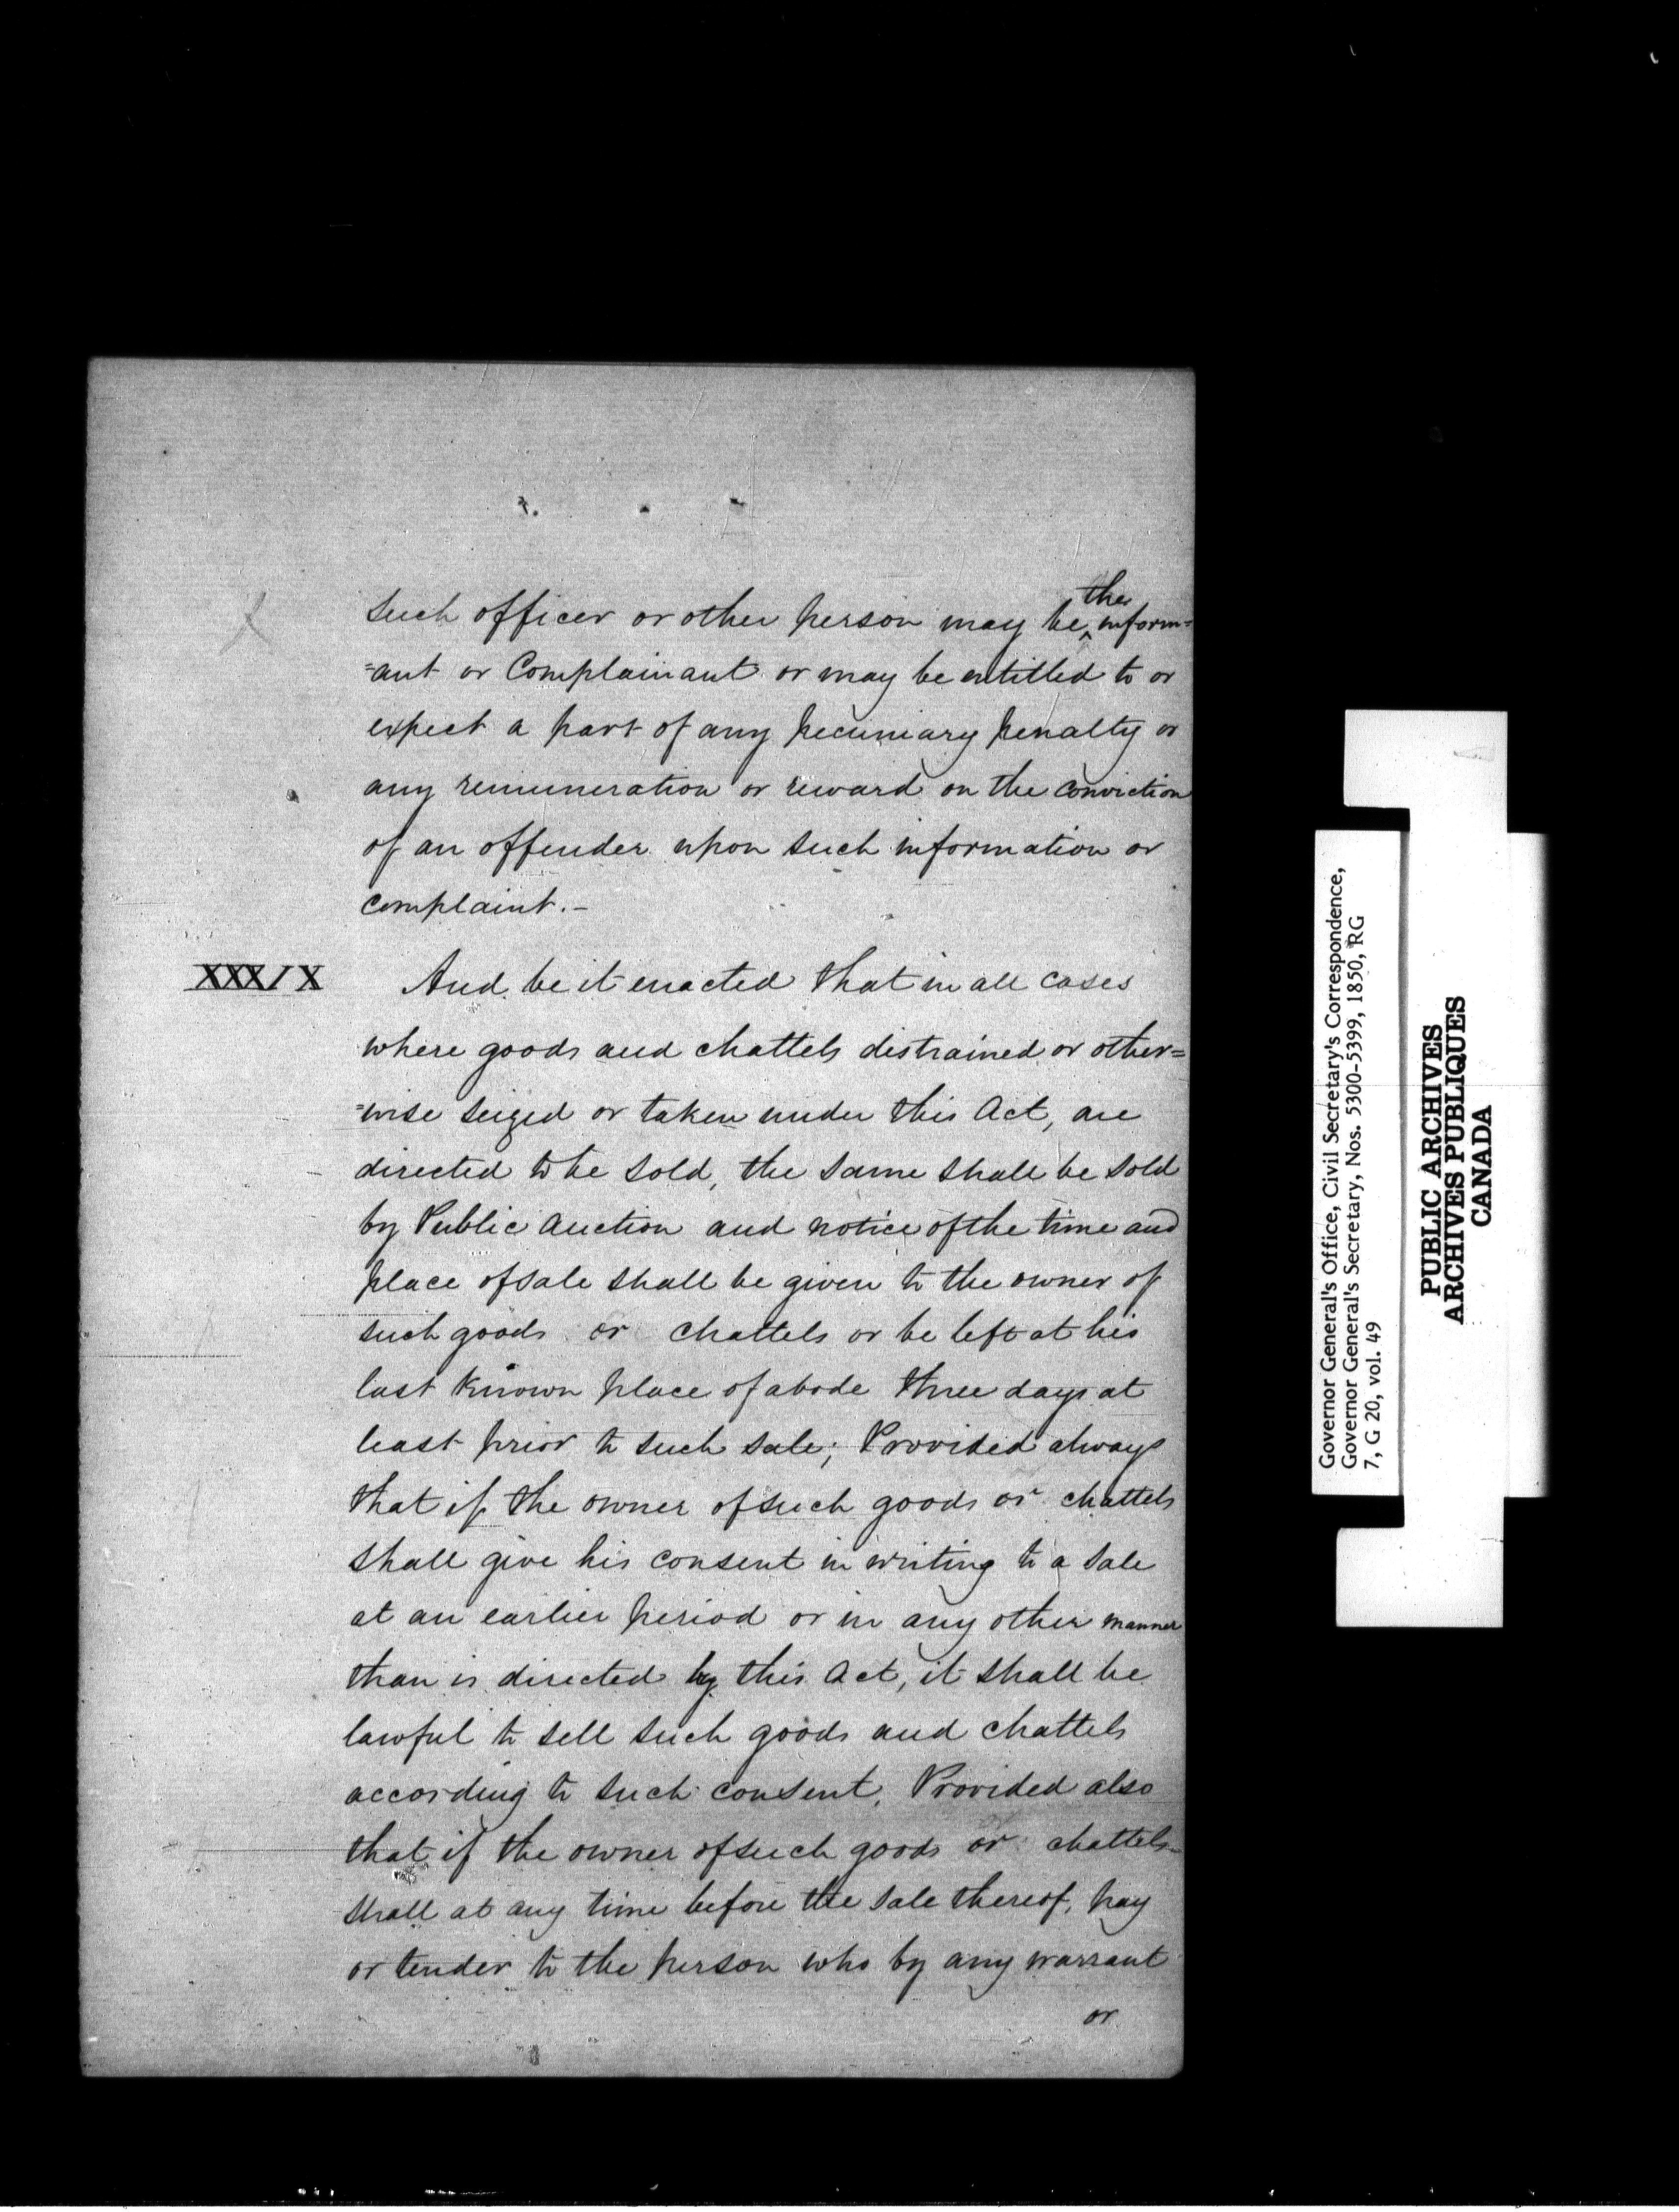 the
such officer or other person may be ^ inform=
=ant or Complainant or may be entitled to or
expect a part of any pecuniary penalty or
any remuneration or reward on the conviction
of an offender upon such information or
complaint.-
XXXIX
And be it enacted that in all cases
where goods and chattels distrained or other=
=wise seized or taken under this Act, are
directed to be sold, the same shall be sold
by Public Auction and notice of the time and
place of sale shall be given to the owner of
such goods or chattels or be left at his
last known place of abode three days at
least prior to such sale; Provided always
that if the owner of such goods or chattels
shall give his consent in writing to a sale
at an earlier period or in any other manner
than is directed by this Act, it shall be
lawful to sell such goods and chattels
according to such consent. Provided also
that if the owner of such goods or chattels
shall at any time before the sale thereof, pay
or tender to the person who by any warrant
or
Governor General's Office, Civil Secretary's Correspondence,
Governor General's Secretary, Nos. 5300-5399, 1850, RG
7, G 20, vol. 49
PUBLIC ARCHIVES
ARCHIVES PUBLIQUES
CANADA